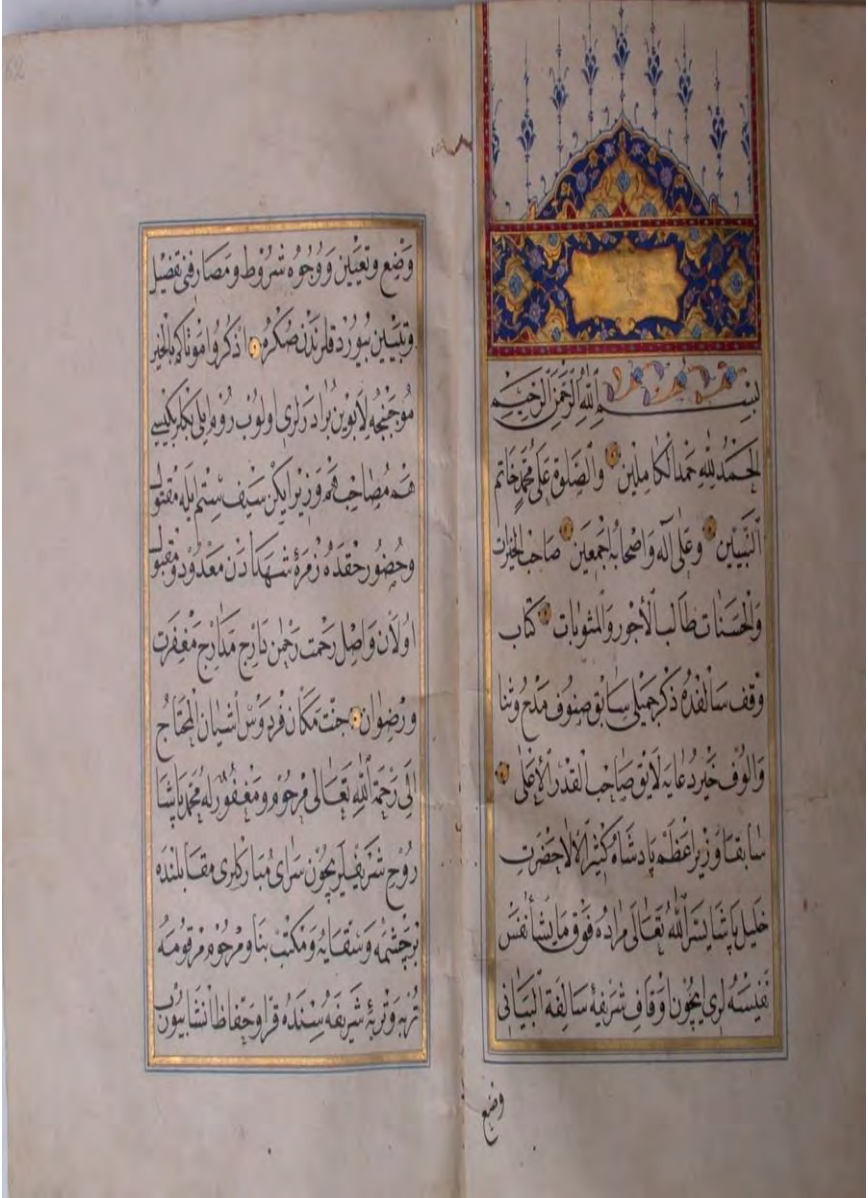 بسم الله الرحمن الرحيم
الحمد لله حمد الكاملين والصلوة على محمد خاتم
النبيين وعلى آله واصحابه اجمعين صاحب الخيرات
والحسنات طالب الأجور والمثوبات كتاب
وقف سالفده ذكر جميلى سابق صنوف مدح وثنا
والوف خير دعايه لايق صاحب القدر الأعلى
سابقا وزير اعظم پادشاه كثير الآلا حضرت
خليل پاشا يسر الله تعالى مراده فوق ما يشأ نفس
نفيسه لرى ايچون اوقاف شريفهٔ سالفة البيانى
وضع
وضع وتعيين ووجوه شروط ومصارفنى تفصيل
وتبيين بيوردقلرندن صكره اذكروا موتاكم بالخير
موجبنجه لابوين برادرلرى اولوب روم ايلى بكلربكيسى
هم مصاحب هم وزير ايكن سيف ستم ايله مقتول
وحضور حقده زمرهٔ شهدادن معدود ومقبول
اولان واصل رحمت رحمن دارج مدارج مغفرت
ورضوان جنت مكان فردوس آشيان المحتاج
الى رحمة الله تعالى مرحوم ومغفور له محمد پاشا
روح شريفلريچون سراى مباركلرى مقابلنده
بر چشمه وسقايه ومكتب بنا ومرحوم مرقومه
تربه وتربهٔ شريفه سنده قرا وحفاظ انشا بيورن